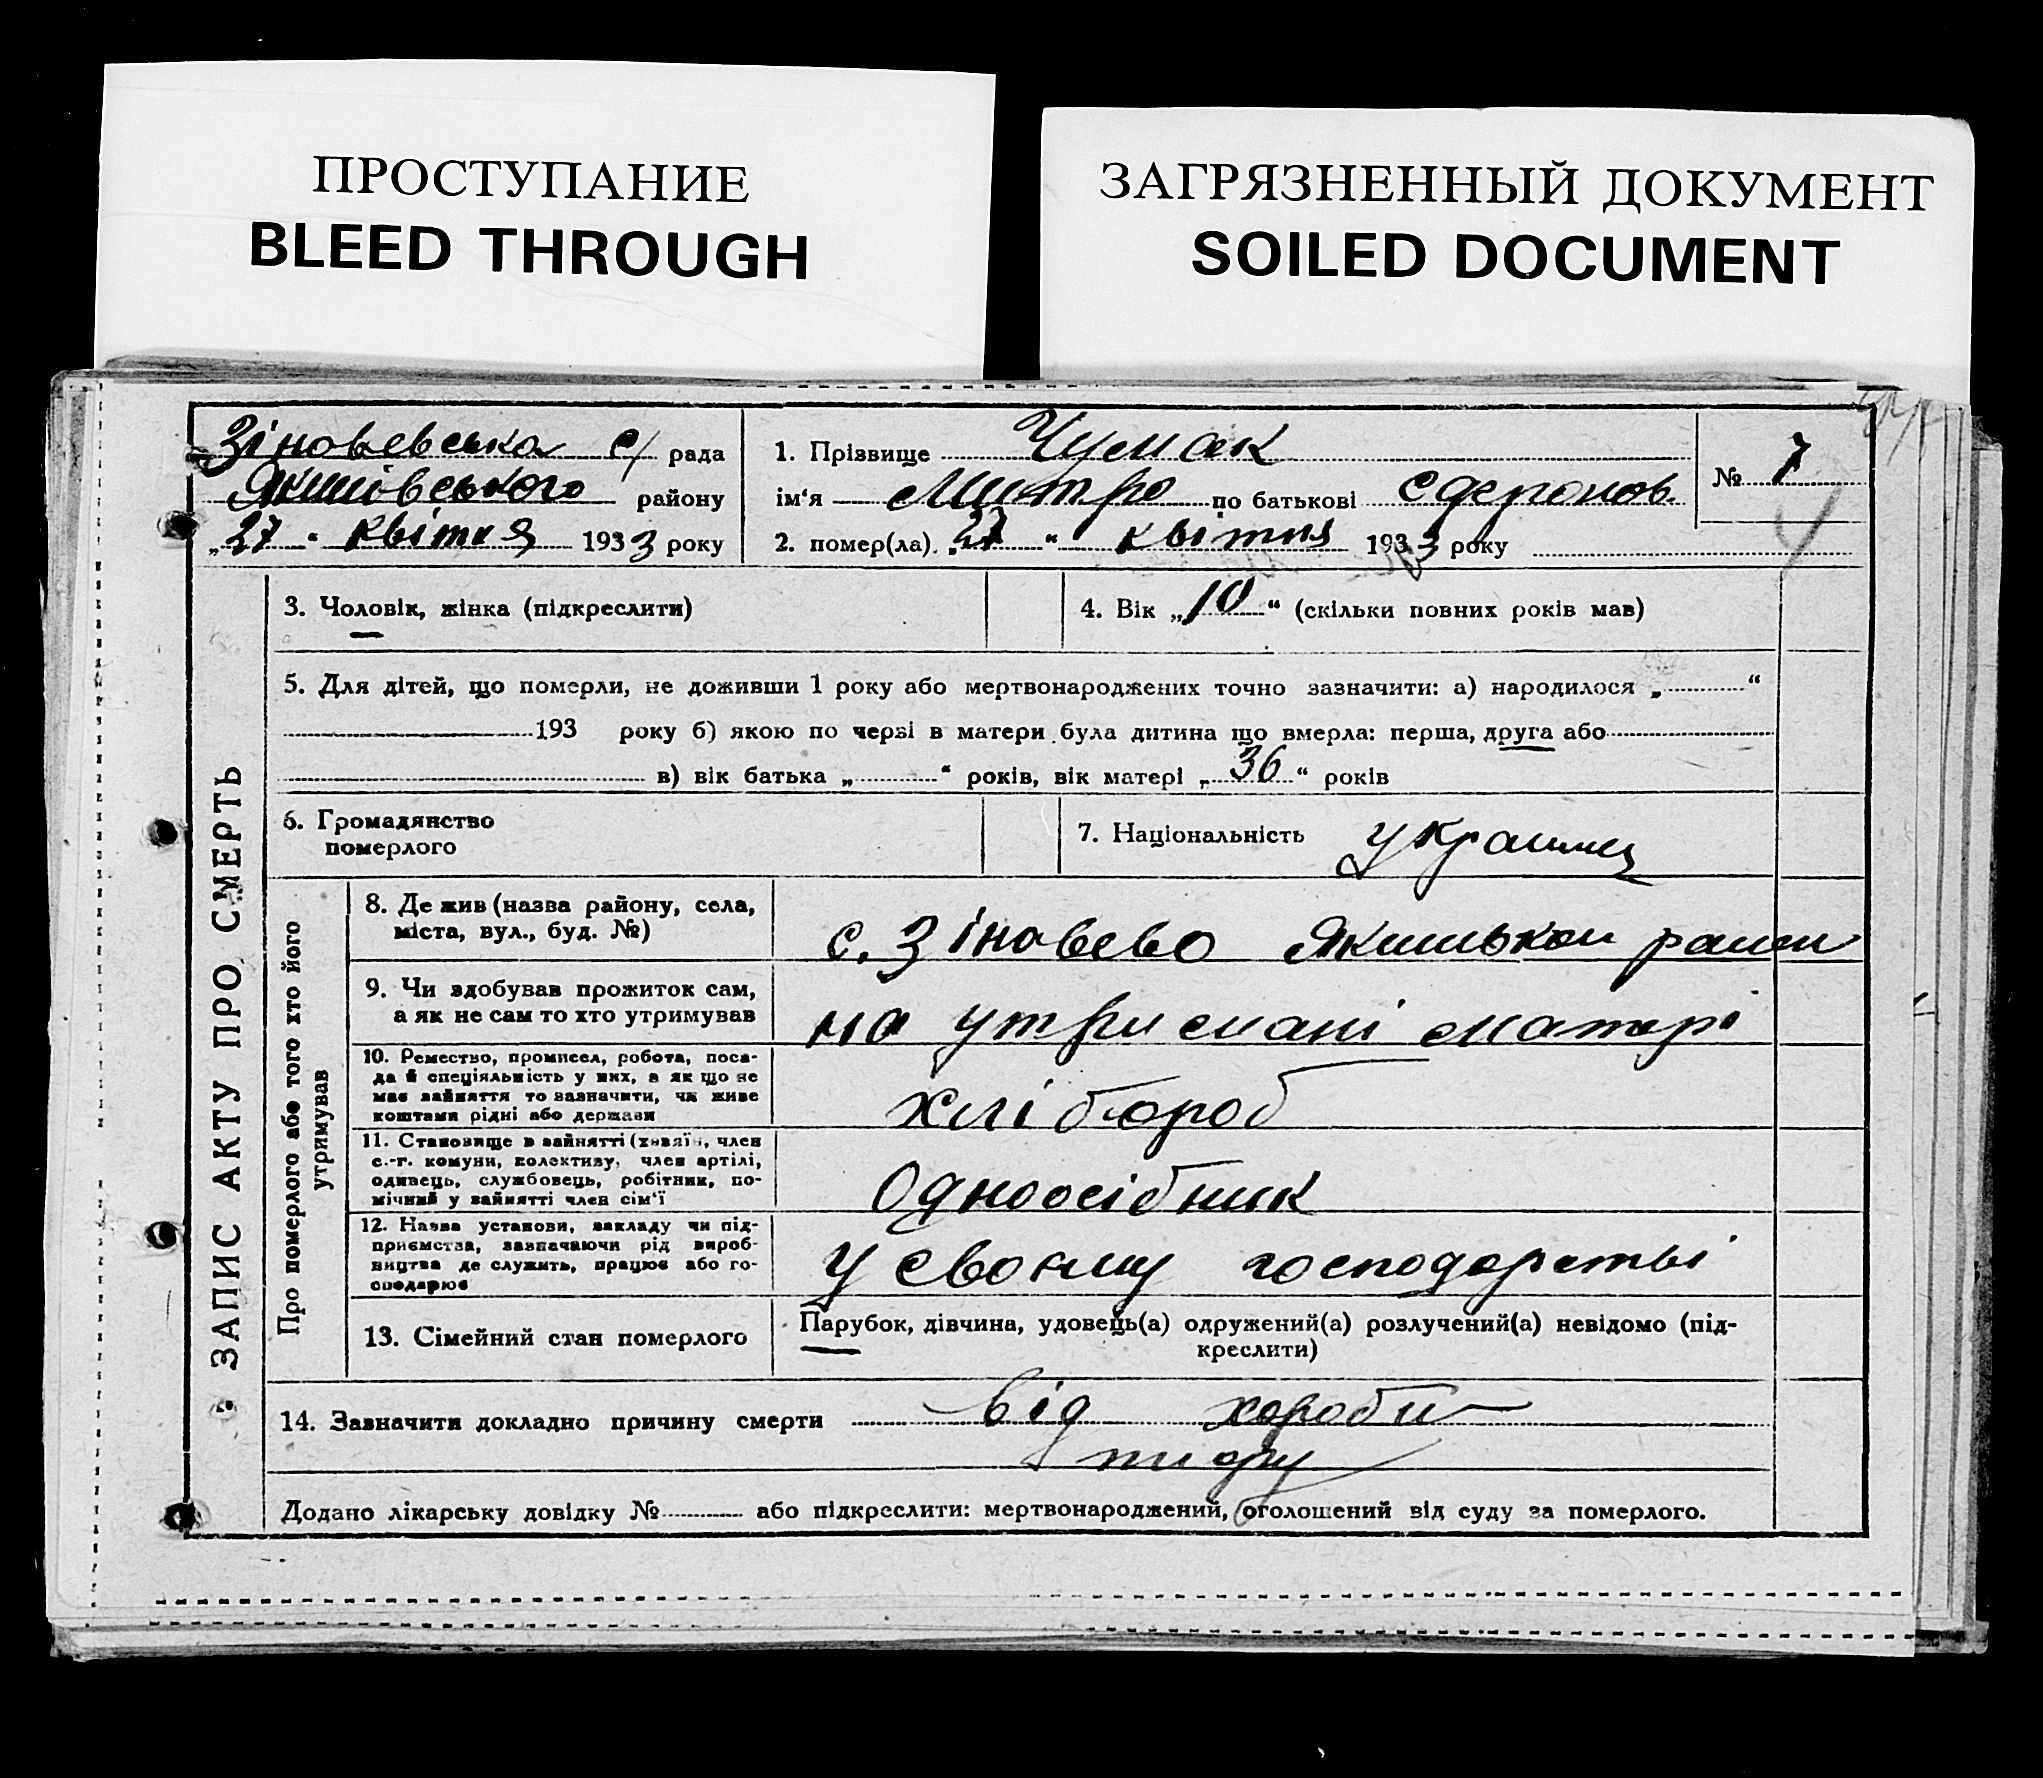 ПРОСТУПАНИЕ
BLEED THROUGH
ЗАГРЯЗНЕННЫЙ ДОКУМЕНТ
SOILED DOCUMENT
ЗАПИС АКТУ ПРО СМЕРТЬ
Зіновьевська с/ рада
району
„27“ квітня 1933 року
1. Прізвище Чумак
ім‘я Митро по батькові
2. помер(ла) „27“ квітня 1933 року
№ 7
3. Чоловік, жінка (підкреслити)
4. Вік „10“ (скільки повних років мав)
5. Для дітей, що померли, не доживши 1 року або мертвонароджених точно зазначити: а) народилося „ “
193 року б) якою по черзі в матери була дитина що вмерла: перша, друга або
в) вік батька „ “ років, вік матері „36“ років
6. Громадянство
померлого
7. Національність
Про померлого або того хто його
утримував
8. Де жив (назва району, села,
міста, вул., буд. №)
с. Зіновєво
9. Чи здобував прожиток сам,
а як не сам то хто утримував
на утримані матері
10. Ремество, промисел, робота, поса-
да й спеціяльність у них, а як що не
має зайняття то зазначити, чи живе
коштами рідні або держави
хлібороб
11. Становище в зайнятті (хазяїн, член
с.-г. комуни, колективу, член артілі,
одинець, службовець, робітник, по-
мічний у зайнятті член сім‘ї
Одноосібник
12. Назва установи, закладу чи під-
приємства, зазначаючи рід вироб-
ництва де служить, працює або го-
сподарює
у своєму господарстві
13. Сімейний стан померлого
Парубок, дівчина, удовець(а) одружений(а) розлучений(а) невідомо (під-
креслити)
14. Зазначити докладно причину смерти від хороби
тифу
Додано лікарську довідку № або підкреслити: мертвонароджений, оголошений від суду за померлого.